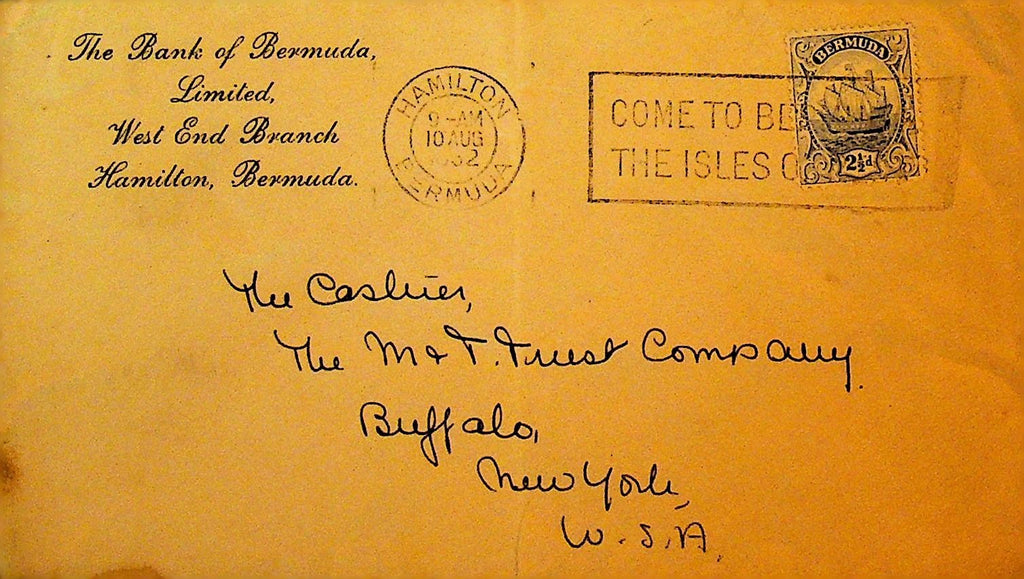 The Bank of Bermuda,
Limited,
West End Branch
Hamilton, Bermuda.
HAMILTON
9-AM
10 AUG
BERMUDA
COME TO BE
THE ISLES
BERMUDA
2½d
The Cashier,
The M & T. Trust Company.
Buffalo,
New York,
U.S.A.